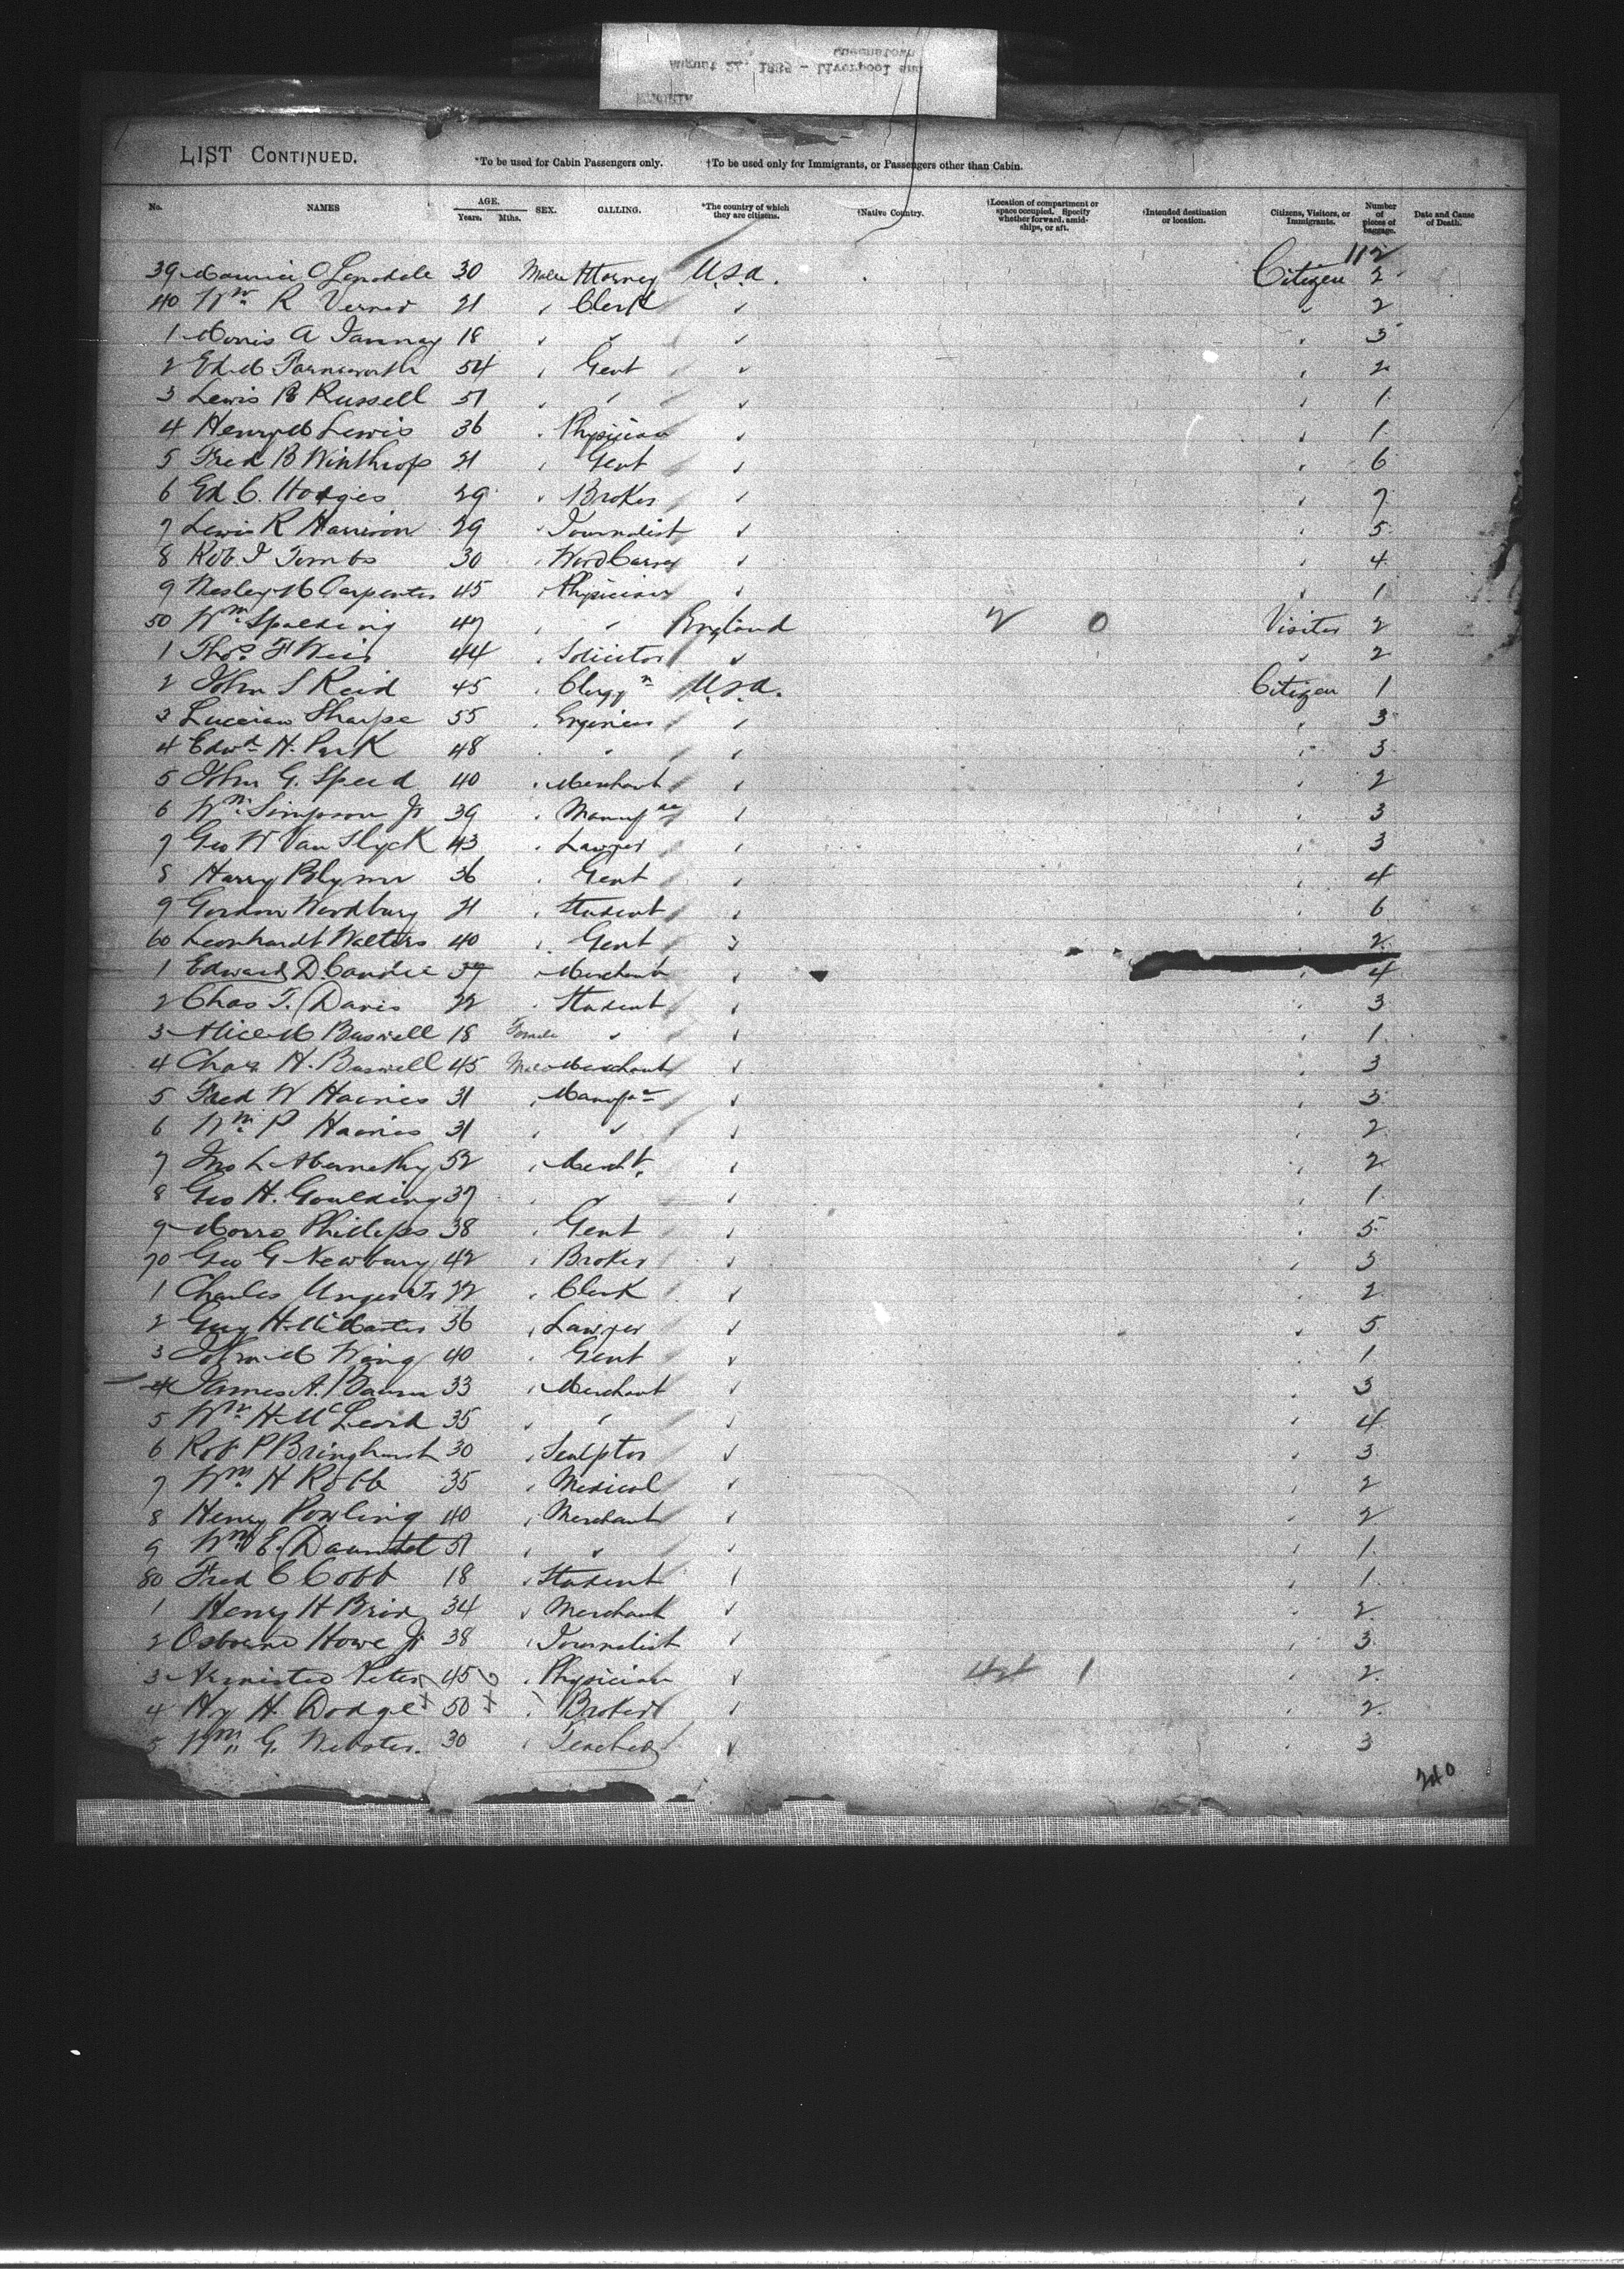 LIST CONTINUED.
*To be used for Cabin Passengers only. †To be used only for Immigrants, or Passengers other than Cabin.
No. NAMES AGE. Years. Mths. SEX. CALLING. *The country of which they are citizens. †Native Country. †Location of compartment or space occupied. Specify whether forward, amidships, or aft. †Intended destination or location. Citizens, Visitors, or Immigrants. Number of pieces of baggage. Date and Cause of Death.
112
39 30 Male Attorney U.S.A. Citizen 2
40 Wm R Verner 21 Clerk 2
1 Morris A 18 3
2 Ed. M Farnsworth 54 Gent 2
3 Lewis B Russell 51 1
4 Henry M Lewis 36 Physician 1
5 Fred B Winthrop 21 Gent 6
6 Ed C. Hodges 29 Broker 7
7 Lewis R Harrison 29 Journalist 5
8 Rob. J Tombs 30 4
9 Wesley M Carpenter 45 Physician 1
50 Wm Spalding 47 England 2 0 Visitor 2
1 Thos. F Weir 44 Solicitor 2
2 John S Reid 45 Clergyn U.S.A. Citizen 1
3 Lucian Sharpe 55 Engineer 3
4 Edwd H. Park 48 3
5 John G. Speed 40 Merchant 2
6 Wm Simpson Jr 39 3
7 Geo W Van Slyck 43 Lawyer 3
8 Harry 36 Gent 4
9 Gordon Woodbury 21 Student 6
60 Leonhardt Walters 40 Gent 2
1 Edward D. Candee Merchant 4
2 Chas T. Davis 22 Student 3
3 Alice M Buswell 18 Female 1
4 Chas H. Buswell 45 Male Merchant 3
5 Fred W Haines 31 3
6 Wm P Haines 31 2
7 Jno L Abernethy 52 Mercht. 2
8 Geo H. Goulding 37 1
9 Morro Phillips 38 Gent 5
70 Geo G Newbury 42 Broker 3
1 Charles Unger Jr 22 Clerk 2
2 Guy H. McMaster 36 Lawyer 5
3 John M Wing 40 Gent 1
4 James A. 33 Merchant 3
5 Wm H. McLeod 35 4
6 Robt P Bringhurst 30 Sculptor 3
7 Wm H Robb 35 Medical 2
8 Henry 40 Merchant 2
9 Wm E. 51 1
80 Fred C Cobb 18 Student 1
1 Henry H 34 Merchant 2
2 Osborne Howe Jr 38 Journalist 3
3 Armisted Peter 45 Physician 1 2
4 Hy H. Dodge 50 Broker 2
5 Wm G. Webster. 30 Teacher 3
240